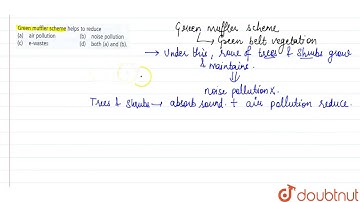 Green muffler scheme helps to reduce
(a) air pollution (b) noise pollution
(c) e-wastes (d) both (a) and (b).
Green muffler scheme
↳ Green belt vegetation
→ Under this, rows of trees & shrubs grow
& maintains.
⇓
noise pollution x.
Trees & Shrubs → absorb sound. + air pollution reduce.
doubtnut